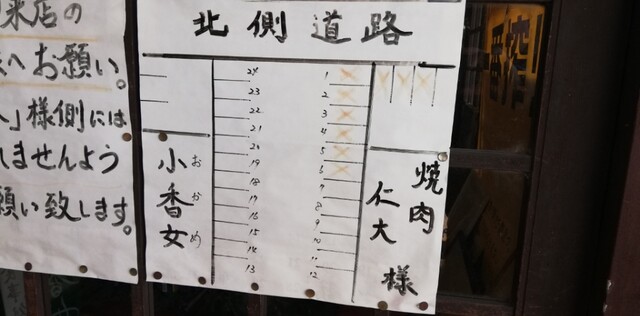 来店の
へお願い。
」様側には
しませんよう
願い致します。
北側道路
24
23
22
21
20
19
18
17
16
15
14
13
1
2
3
4
5
6
7
8
9
10
11
12
小香女
おかめ
焼肉
仁大
様
一番搾り